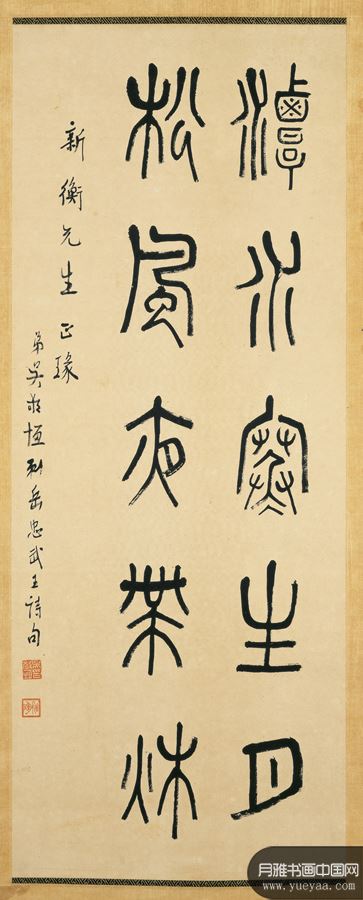 潭水寒生月
松風夜帶秋
新衡先生正瑑
弟吳敬恒岳忠武王詩句
月雅书画中国网
www.yueyaa.com